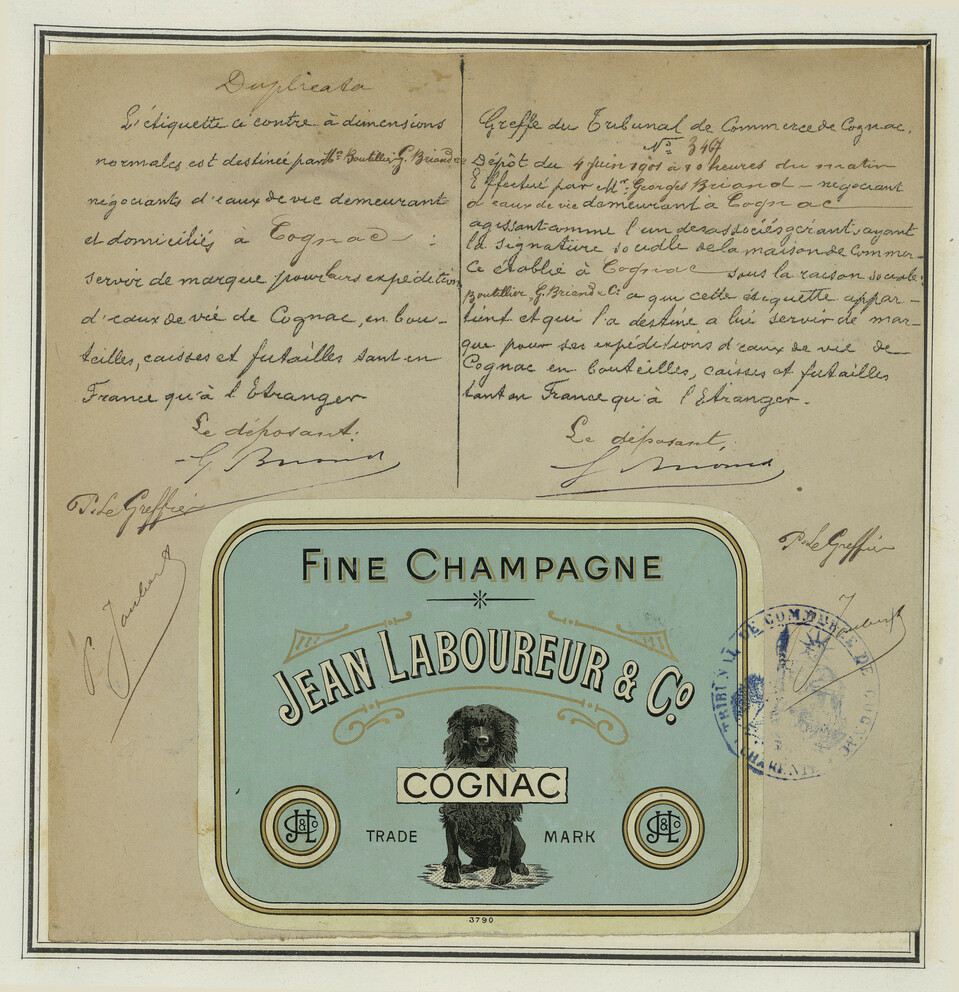 Duplicata
L'étiquette ci contre à dimensions
normales est destinée par Mrs Boutillier G. Briand & Ce
négociants d'eaux de vie demeurant
et domiciliés à Cognac :
servir de marque pour leurs expéditions
d'eaux de vie de Cognac, en bou-
teilles, caisses et futailles tant en
France qu'à l'Etranger
Le déposant.
G. Briand
P. Le Greffier
Joubert
Greffe du Tribunal de Commerce de Cognac.
No 3467
Dépôt du 4 Juin 1901 à 10 heures du matin
Effectué par Mr. Georges Briand - négociant
d'eaux de vie demeurant à Cognac
agissant comme l'un des associés gérant, ayant
la signature sociale de la maison de Commer-
ce établie à Cognac sous la raison sociale
Boutillier, G. Briand & Ce a qui cette étiquette appar-
tient et qui l'a destiné a lui servir de mar-
que pour ses expéditions d'eaux de vie de
Cognac en bouteilles, caisses et futailles
tant en France qu'à l'Etranger.
Le déposant,
G. Briand
P. Le Greffier
Joubert
TRIBUNAL DE COMMERCE DE COGNAC
CHARENTE
FINE CHAMPAGNE
JEAN LABOUREUR & Co.
COGNAC
TRADE MARK
3790